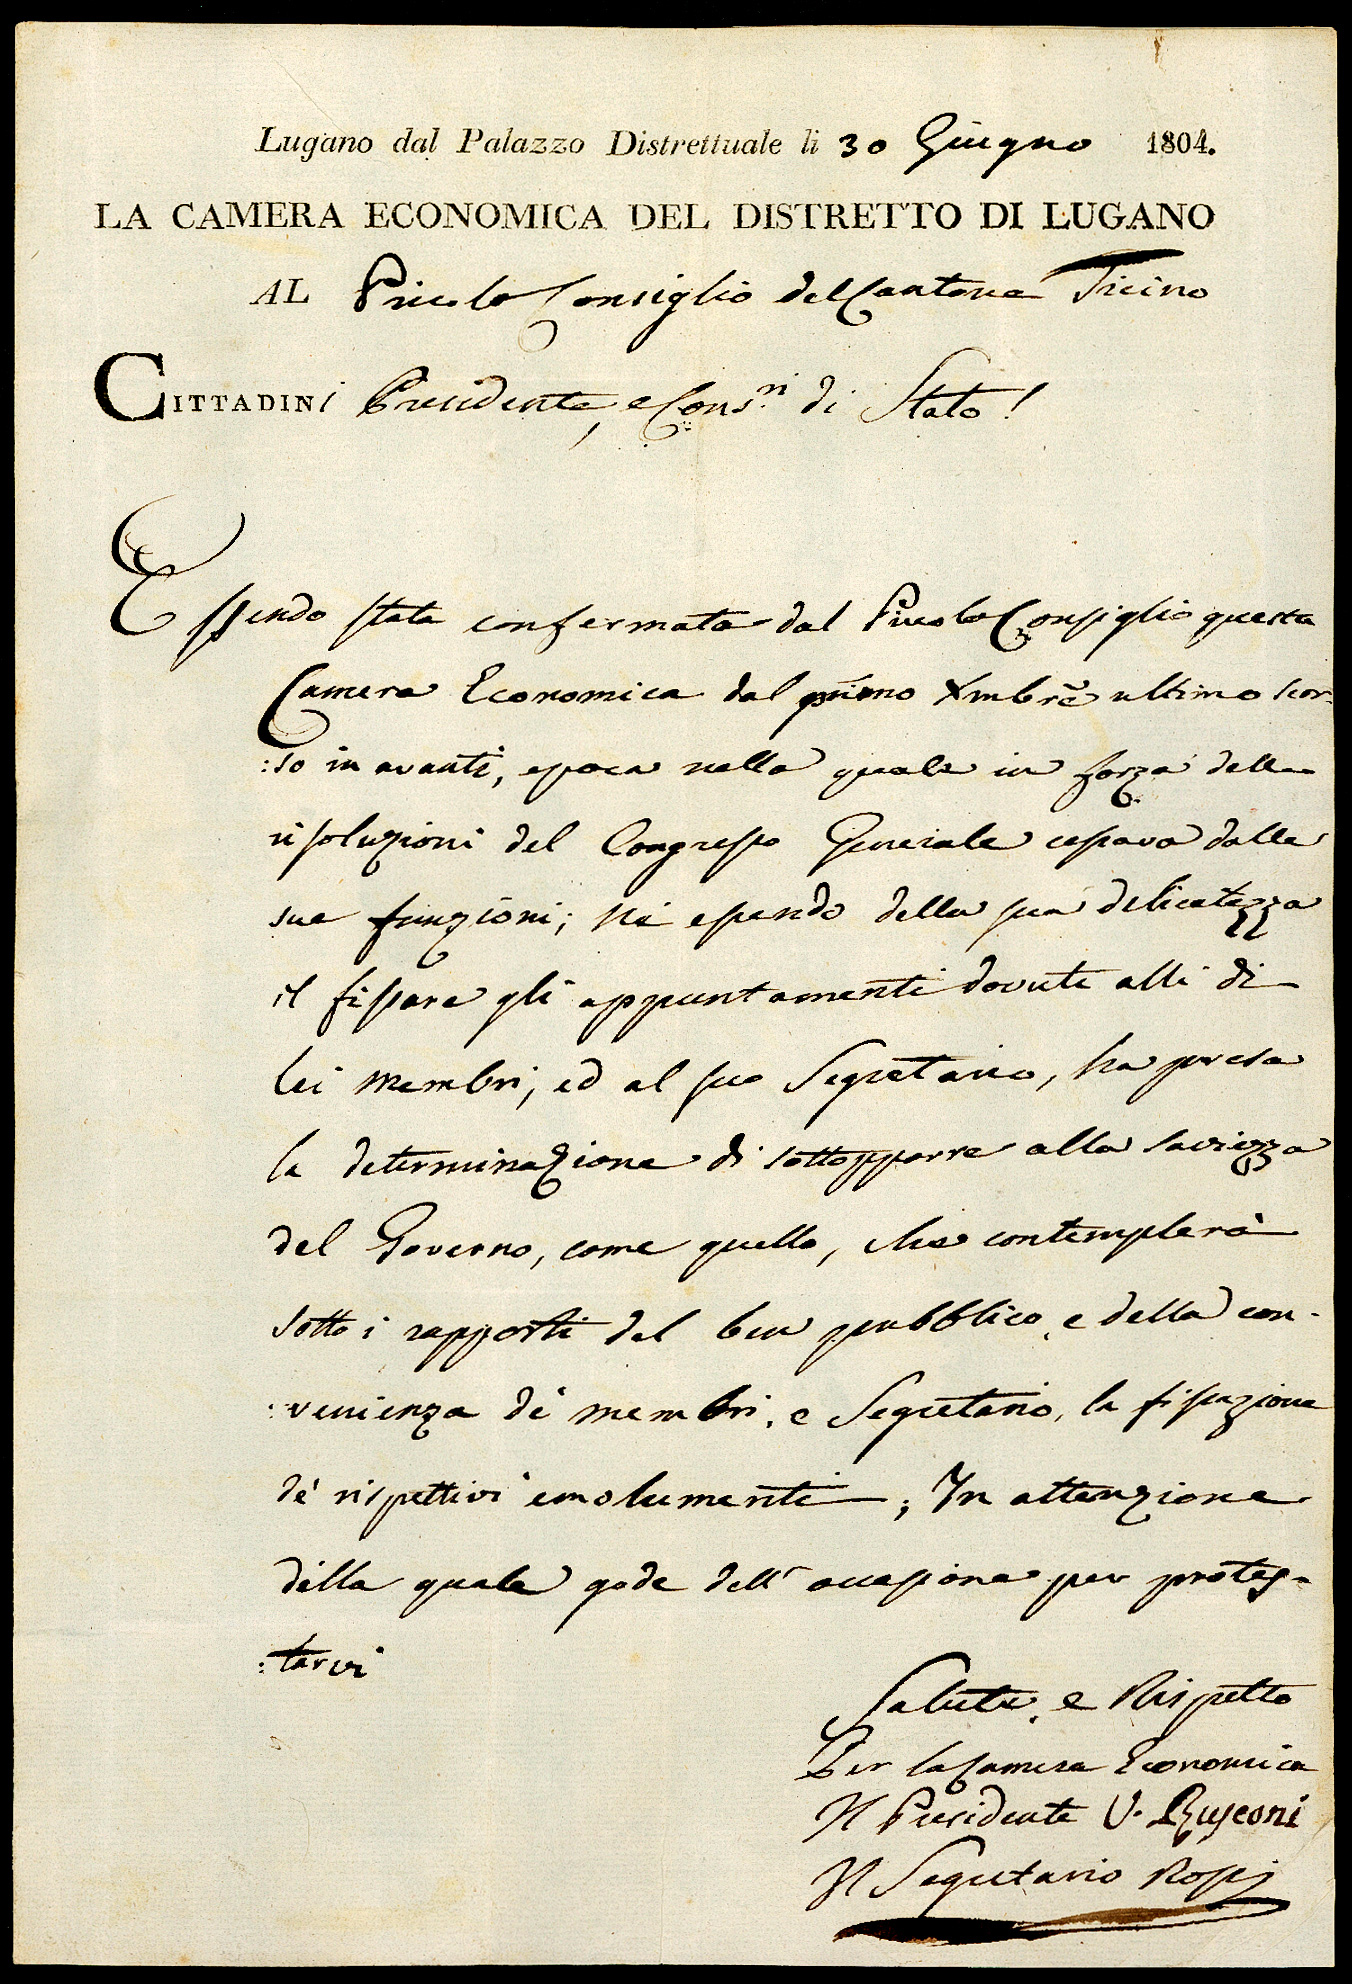 Lugano dal Palazzo Distrettuale li 30 Giugno 1804.
LA CAMERA ECONOMICA DEL DISTRETTO DI LUGANO
AL Piccolo Consiglio del Cantone Ticino
CITTADINi Presidente, e Cons.ri di Stato!
Essendo stata confermata dal Piccolo Consiglio questa
Camera Economica dal primo Xmbre ultimo scor-
:so in avanti, epoca nella quale in forza delle
risoluzioni del Congresso Generale cessava dalle
sue funzioni; né essendo della sua delicatezza
il fissare gli appuntamenti dovuti alli di
lei membri, ed al suo Segretario, ha presa
la determinazione di sottopporre alla saviezza
del Governo, come quello, che contemplerà
sotto i rapporti del ben pubblico, e della con-
:venienza de' membri, e Segretario, la fissazione
de' rispettivi emolumenti; In attenzione
della quale gode dell' occasione per protes-
:tarvi
Salute, e Rispetto
Per la Camera Economica
Il Presidente V. Rusconi
Il Segretario Rossi